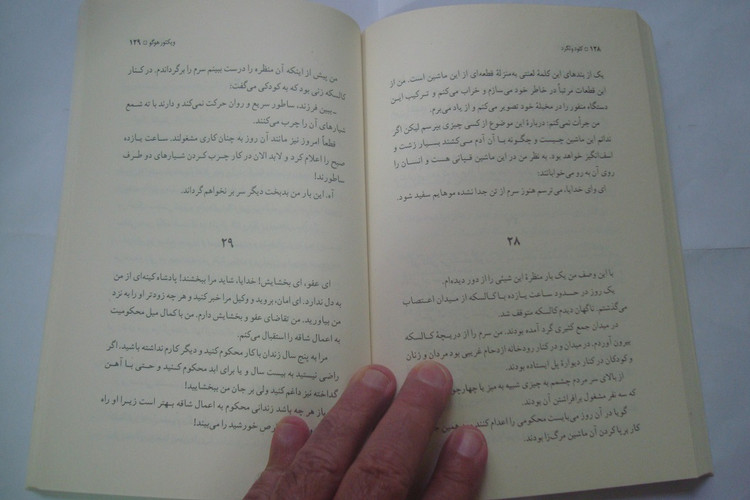 ۱۲۸ □ کلود ولگرد
یک از بندهای این کلمهٔ لعنتی به‌منزلهٔ قطعه‌ای از این ماشین است. من از
این قطعات مرتباً در خاطر خود می‌سازم و خراب می‌کنم و ترکیب این
دستگاه منفور را در مخیلهٔ خود تصویر می‌کنم و از یاد می‌برم.
من جرأت نمی‌کنم، دربارهٔ این موضوع از کسی چیزی بپرسم لیکن اگر
ندانم این ماشین چیست و چگونه با آن آدم می‌کشند بسیار زشت و
اسف‌انگیز خواهد بود. به نظر من در این ماشین قپانی هست و انسان را
روی آن به رو می‌خوابانند؛
ای وای خدایا، می‌ترسم هنوز سرم از تن جدا نشده موهایم سفید شود.
۲۸
با این وصف من یک بار منظرهٔ این شیئی را از دور دیده‌ام.
یک روز در حدود ساعت یازده با کالسکه از میدان اعتصاب
می‌گذشتم. ناگهان دیدم کالسکه متوقف شد.
در میدان جمع کثیری گرد آمده بودند. من سرم را از دریچهٔ کالسکه
بیرون آوردم. در میدان و در کنار رودخانه ازدحام غریبی بود مردان و زنان
و کودکان در کنار دیوارهٔ پل ایستاده بودند.
از بالای سر مردم چشمم به چیزی شبیه به میز یا چهارچو
که سه نفر مشغول برافراشتن آن بودند.
گویا در آن روز می‌بایست محکومی را اعدام کنند و همین
کار برپا کردن آن ماشین مرگ‌زا بودند.
ویکتور هوگو □ ۱۲۹
من پیش از اینکه آن منظره را درست ببینم سرم را برگرداندم. در کنار
کالسکه زنی بود که به کودکی می‌گفت:
ـ ببین فرزند، ساطور سریع و روان حرکت نمی‌کند و دارند با ته شمع
شیارهای آن را چرب می‌کنند.
قطعاً امروز نیز مانند آن روز به چنان کاری مشغولند. ساعت یازده
صبح را اعلام کرد و لابد الان در کار چرب کردن شیارهای دو طرف
ساطورند!
آه، این بار من بدبخت دیگر سر بر نخواهم گرداند.
۲۹
ای عفو، ای بخشایش! خدایا، شاید مرا ببخشند! پادشاه کینه‌ای از من
به دل ندارد. ای امان، بروید و وکیل مرا خبر کنید و هر چه زودتر او را به نزد
من بیاورید. من تقاضای عفو و بخشایش دارم. من با کمال میل محکومیت
به اعمال شاقه را استقبال می‌کنم.
مرا به پنج سال زندان با کار محکوم کنید و دیگر کارم نداشته باشید. اگر
راضی نیستید به بیست سال و یا برای ابد محکوم کنید و حتی با آهن
گداخته نیز داغم کنید ولی بر جان من ببخشایید!
باز هر چه باشد زندانی محکوم به اعمال شاقه بهتر است زیرا او راه
رص خورشید را می‌بیند!